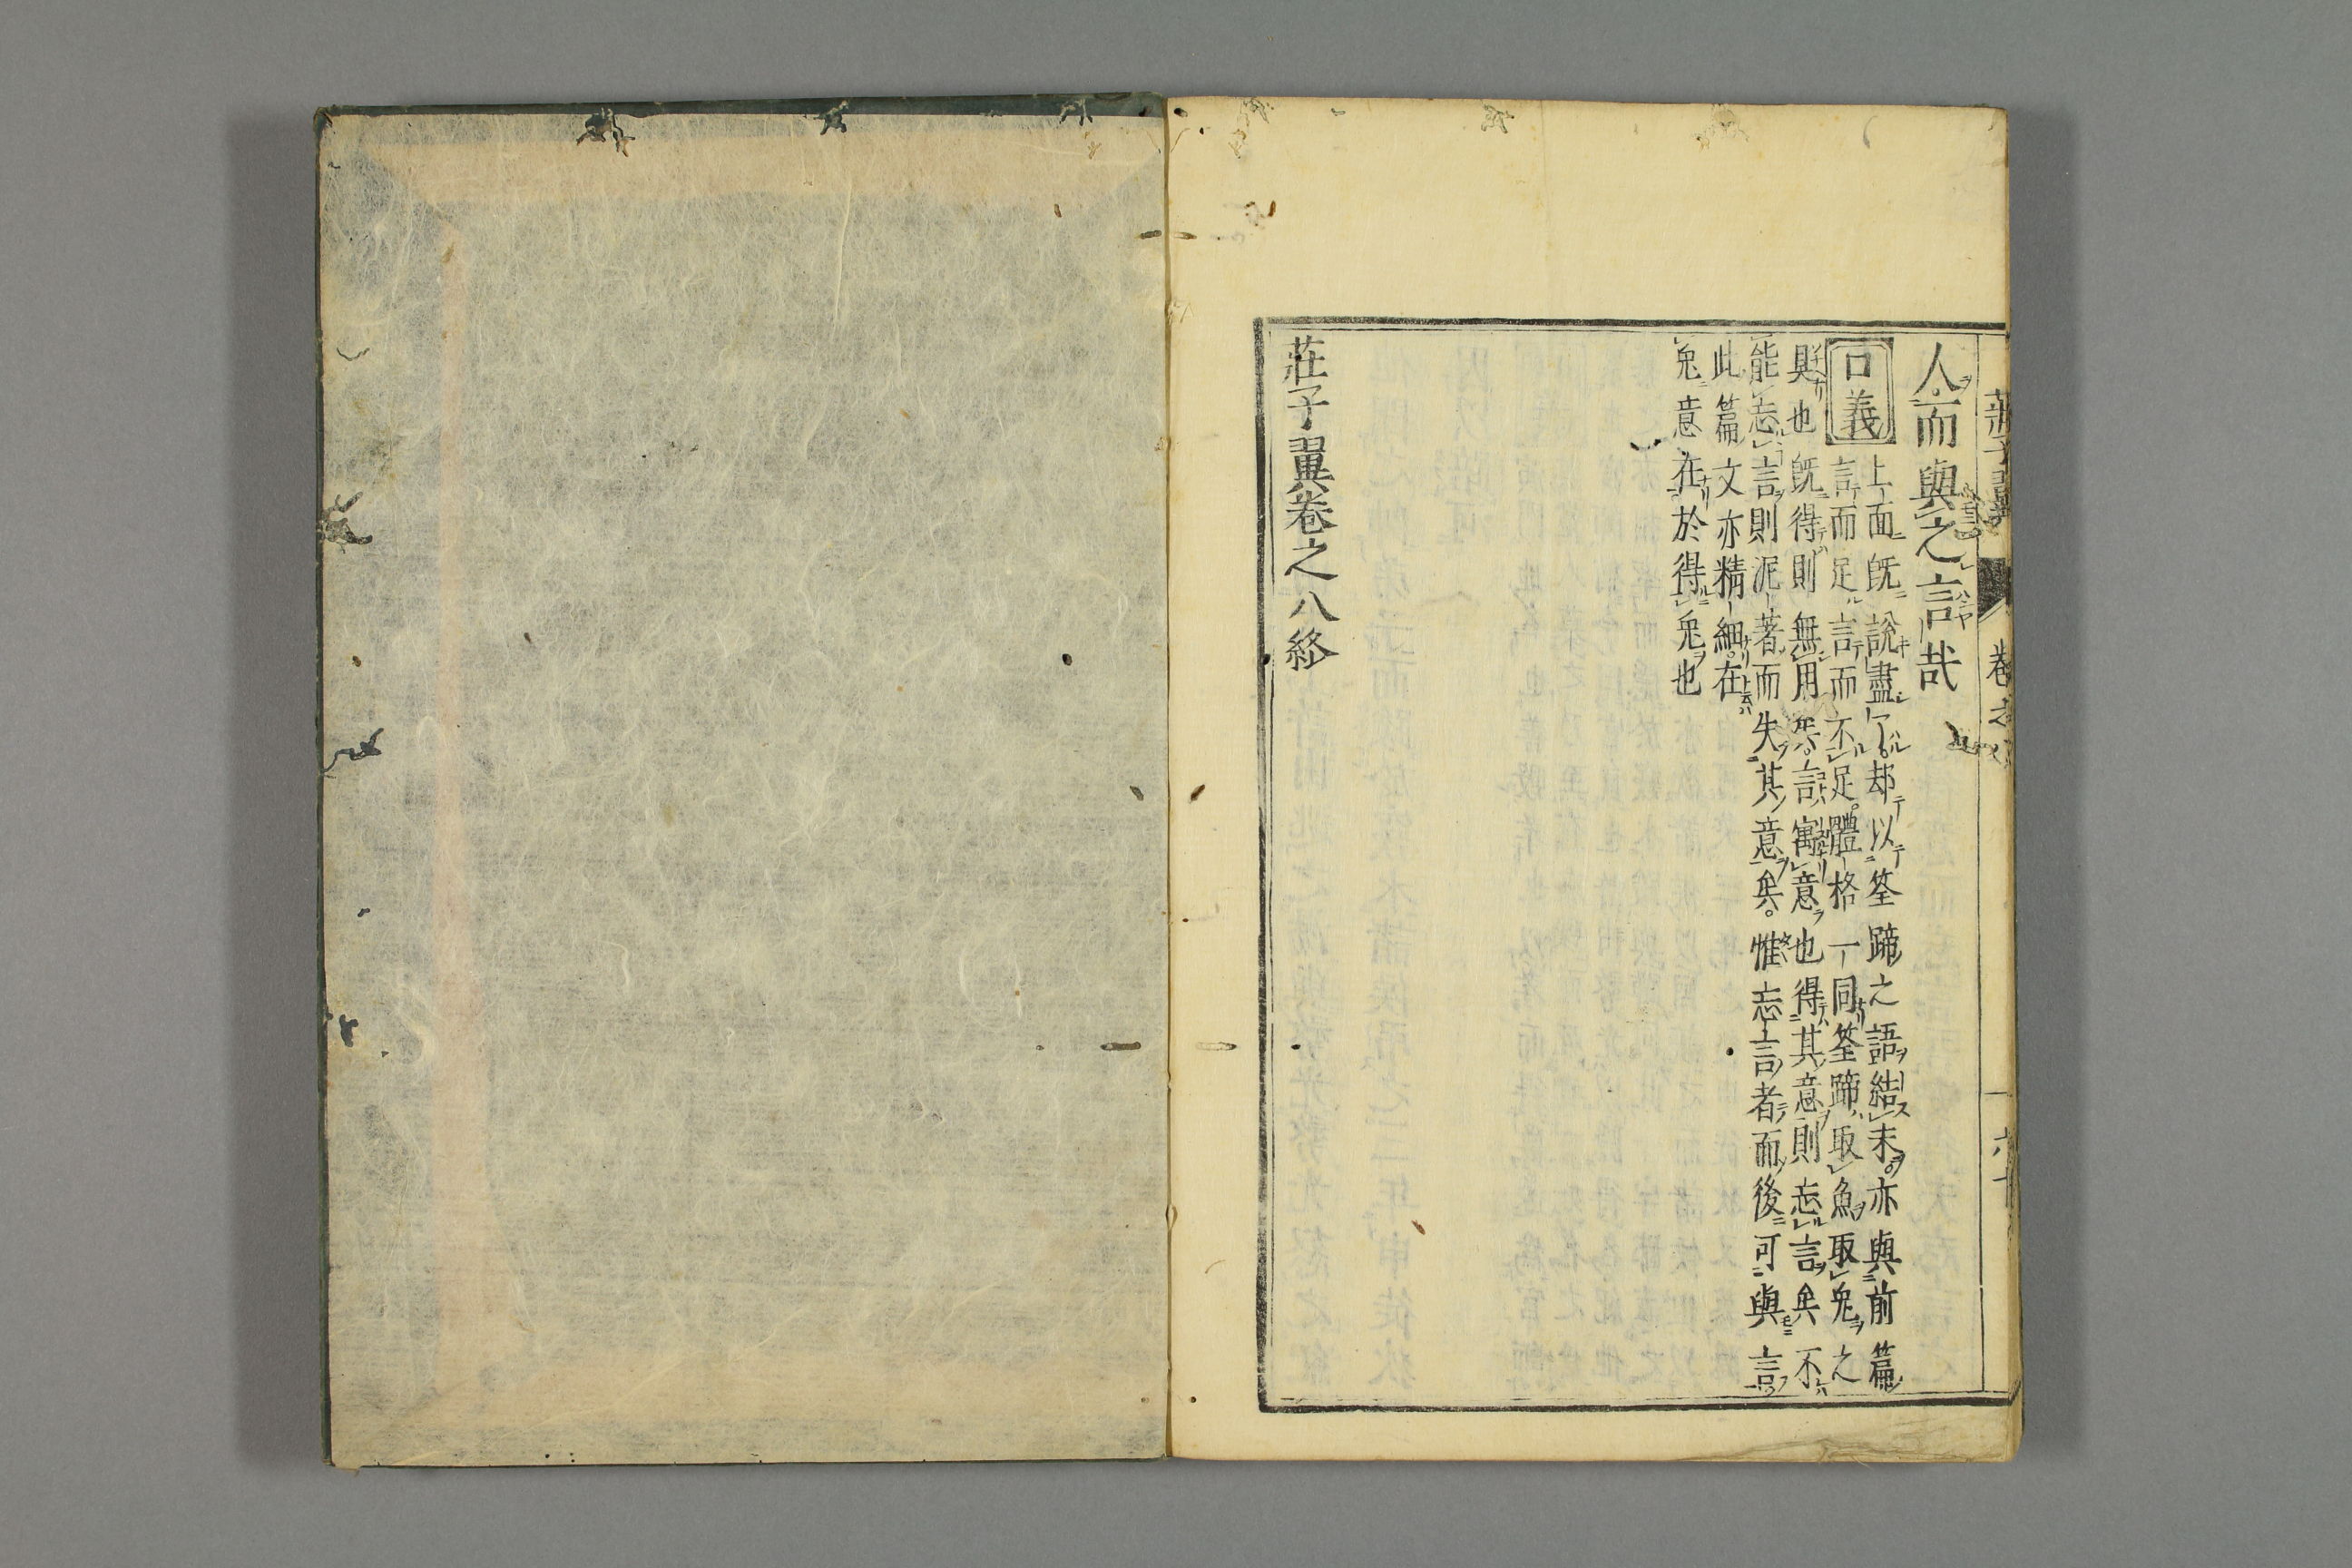 莊子翼 卷之八
人而與之言哉
口義 上面旣說盡了却以筌蹄之語結末亦與前篇
言而足言而不足體格一同筌蹄取魚取兔之
具也旣得則無用矣言寓意也得其意則忘言矣不
能忘言則泥著而失其意矣惟忘言者而後可與言
此篇文亦精細在
兔意在於得兔也
莊子翼卷之八終